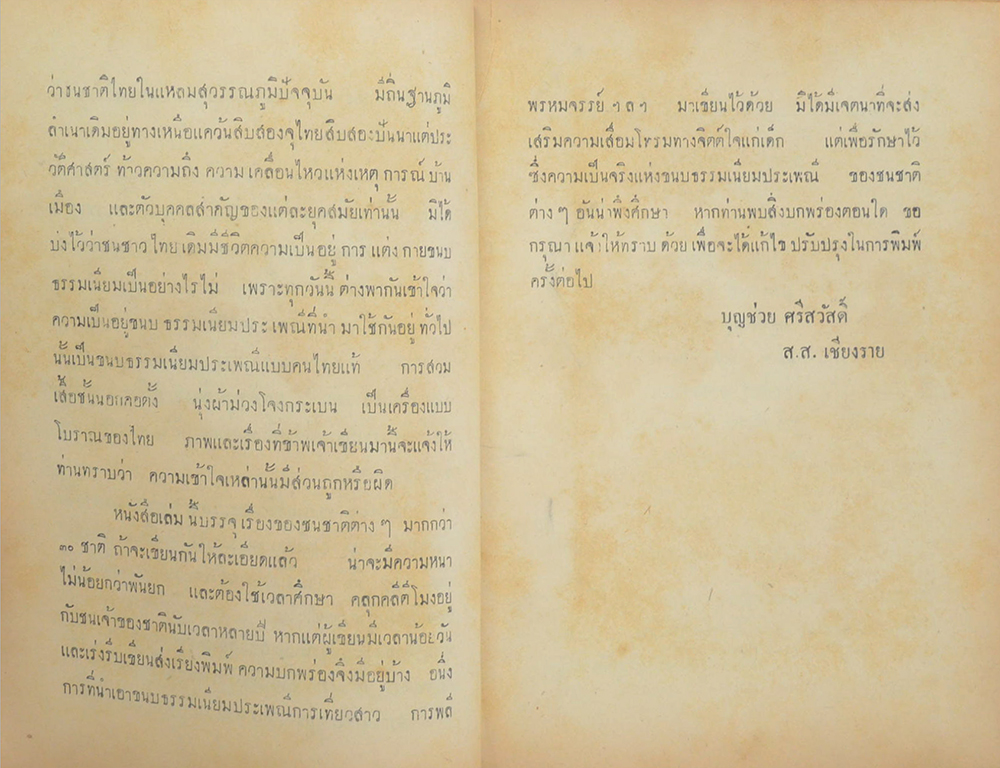 ว่าชนชาติไทยในแหลมสุวรรณภูมิปัจจุบัน มีถิ่นฐานภูมิ
ลำเนาเดิมอยู่ทางเหนือแคว้นสิบสองจุไทยสิบสองปันนาแต่ประ
วัติศาสตร์ ท้าวความถึง ความ เคลื่อนไหวแห่งเหตุ การณ์ บ้าน
เมือง และตัวบุคคลสำคัญของแต่ละยุคสมัยเท่านั้น มิได้
บ่งไว้ว่าชนชาว ไทย เดิมมีชีวิตความเป็นอยู่ การ แต่ง กายขนบ
ธรรมเนียมเป็นอย่างไรไม่ เพราะทุกวันนี้ ต่างพากันเข้าใจว่า
ความเป็นอยู่ขนบ ธรรมเนียมประ เพณีที่นำ มาใช้กันอยู่ ทั่วไป
นั้นเป็นขนบธรรมเนียมประเพณีแบบคนไทยแท้ การสวม
เสื้อชั้นนอกคอตั้ง นุ่งผ้าม่วงโจงกระเบน เป็นเครื่องแบบ
โบราณของไทย ภาพและเรื่องที่ข้าพเจ้าเขียนมานี้จะแจ้งให้
ท่านทราบว่า ความเข้าใจเหล่านั้นมีส่วนถูกหรือผิด
หนังสือเล่ม นี้บรรจุ เรื่องของชนชาติต่าง ๆ มากกว่า
๓๐ ชาติ ถ้าจะเขียนกันให้ละเอียดแล้ว น่าจะมีความหนา
ไม่น้อยกว่าพันยก และต้องใช้เวลาศึกษา คลุกคลีตีโมงอยู่
กับชนเจ้าของชาตินับเวลาหลายปี หากแต่ผู้เขียนมีเวลาน้อยวัน
และเร่งรีบเขียนส่งเรียงพิมพ์ ความบกพร่องจึงมีอยู่บ้าง อนึ่ง
การที่นำเอาขนบธรรมเนียมประเพณีการเที่ยวสาว การพลี
พรหมจรรย์ ฯลฯ มาเขียนไว้ด้วย มิได้มีเจตนาที่จะส่ง
เสริมความเสื่อมโทรมทางจิตต์ใจแก่เด็ก แต่เพื่อรักษาไว้
ซึ่งความเป็นจริงแห่งขนบธรรมเนียมประเพณี ของชนชาติ
ต่าง ๆ อันน่าพึงศึกษา หากท่านพบสิ่งบกพร่องตอนใด ขอ
กรุณา แจ้งให้ทราบ ด้วย เพื่อจะได้แก้ไข ปรับปรุงในการพิมพ์
ครั้งต่อไป
บุญช่วย ศรีสวัสดิ์
ส.ส. เชียงราย